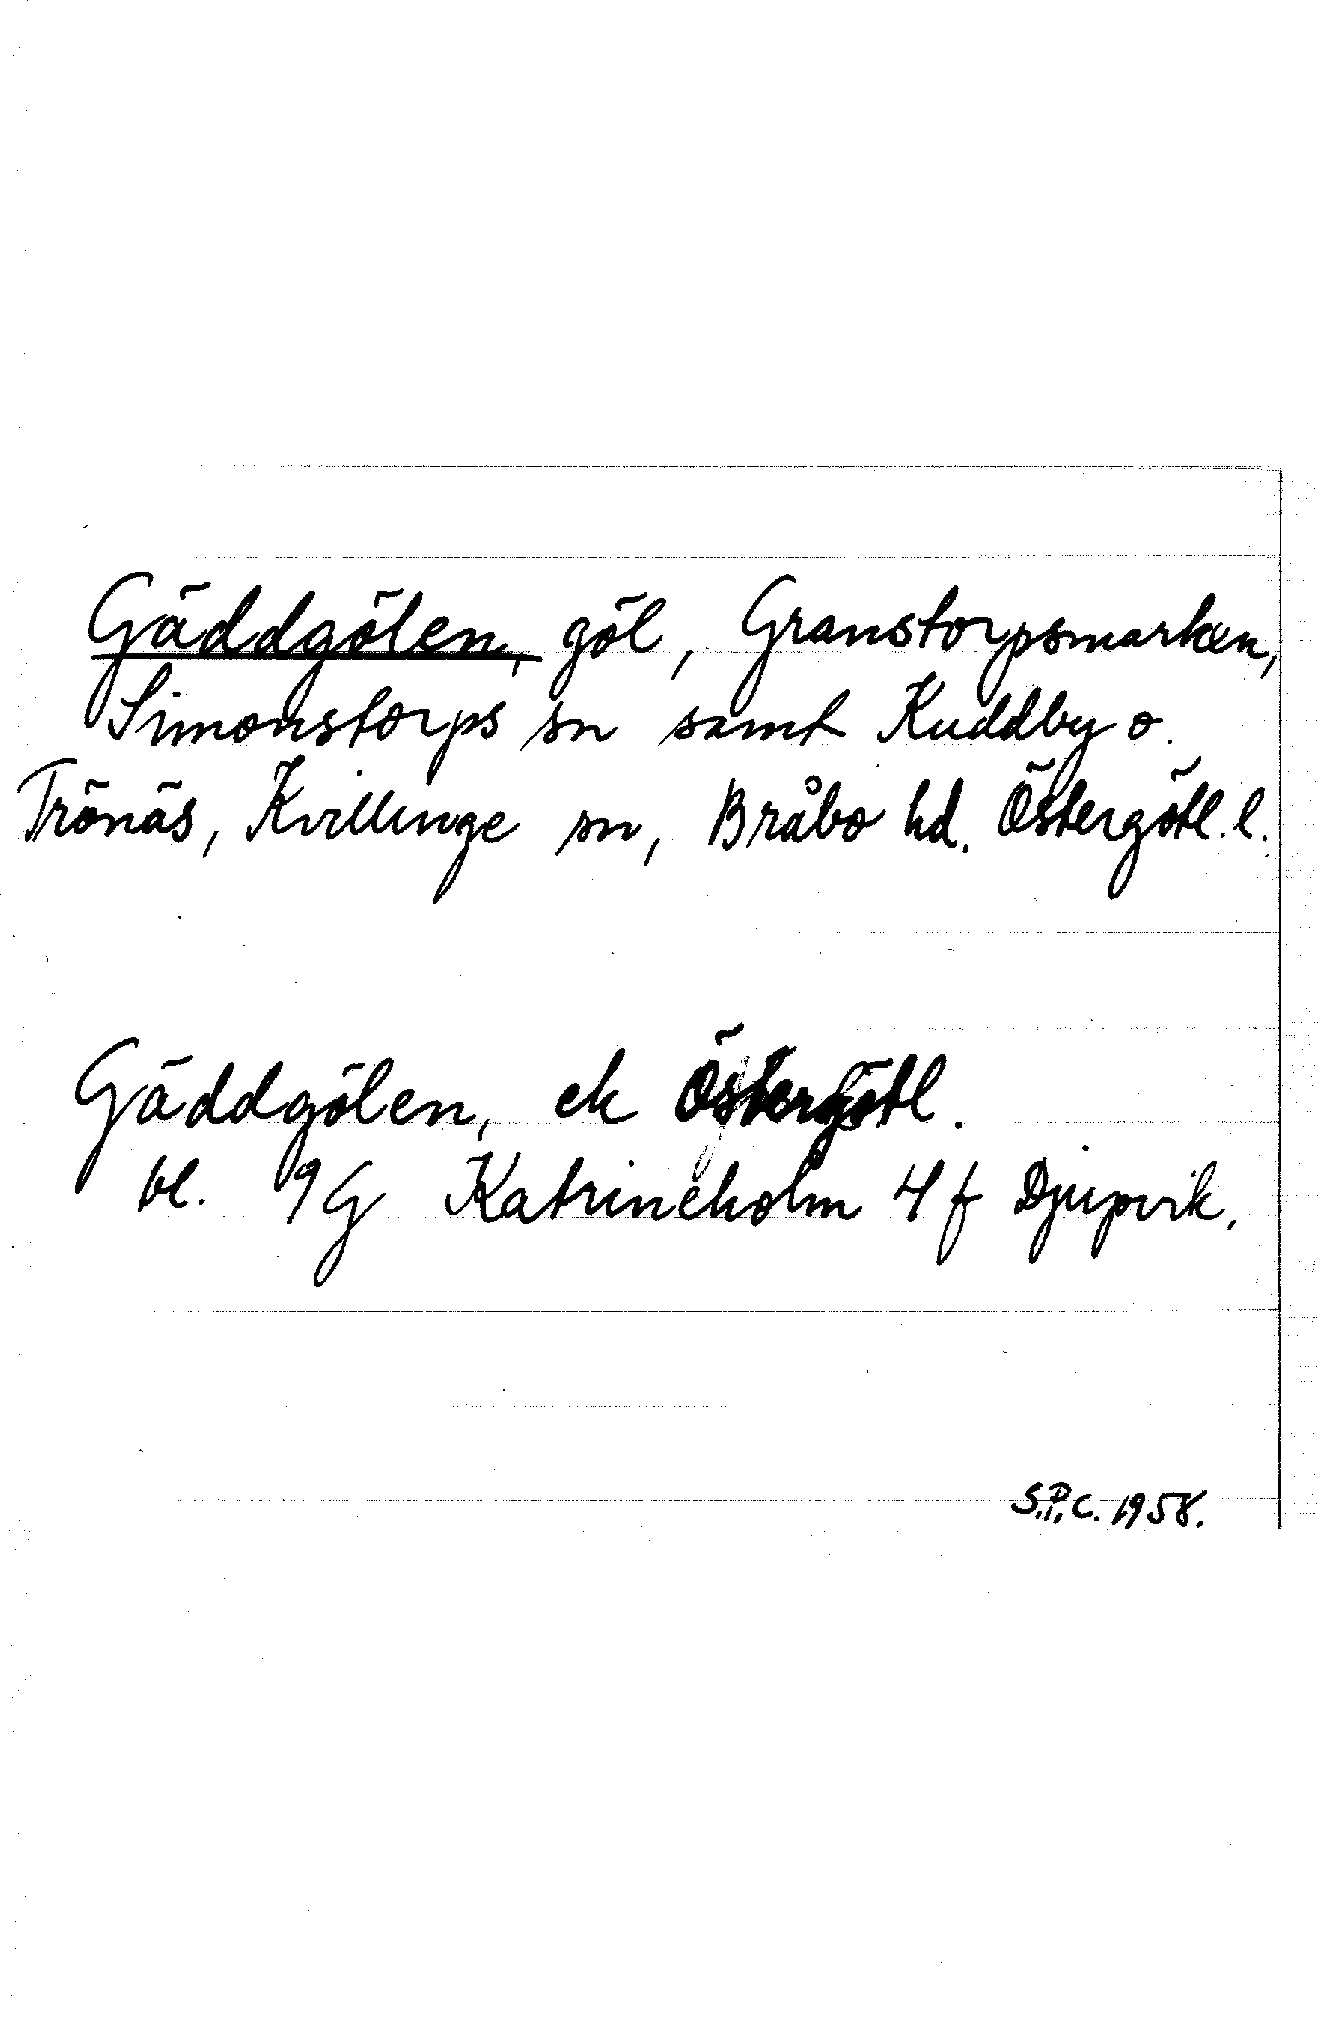 Gäddgölen, göl, Granstorpsmarken,
Simonstorps sn samt Kuddby o.
Trönäs, Kvillinge sn, Bråbo hd. Östergötl. l.
Gäddgölen, ek Östergötl.
bl. 9G Katrineholm 4f Djupvik.
S.P.C. 1958.